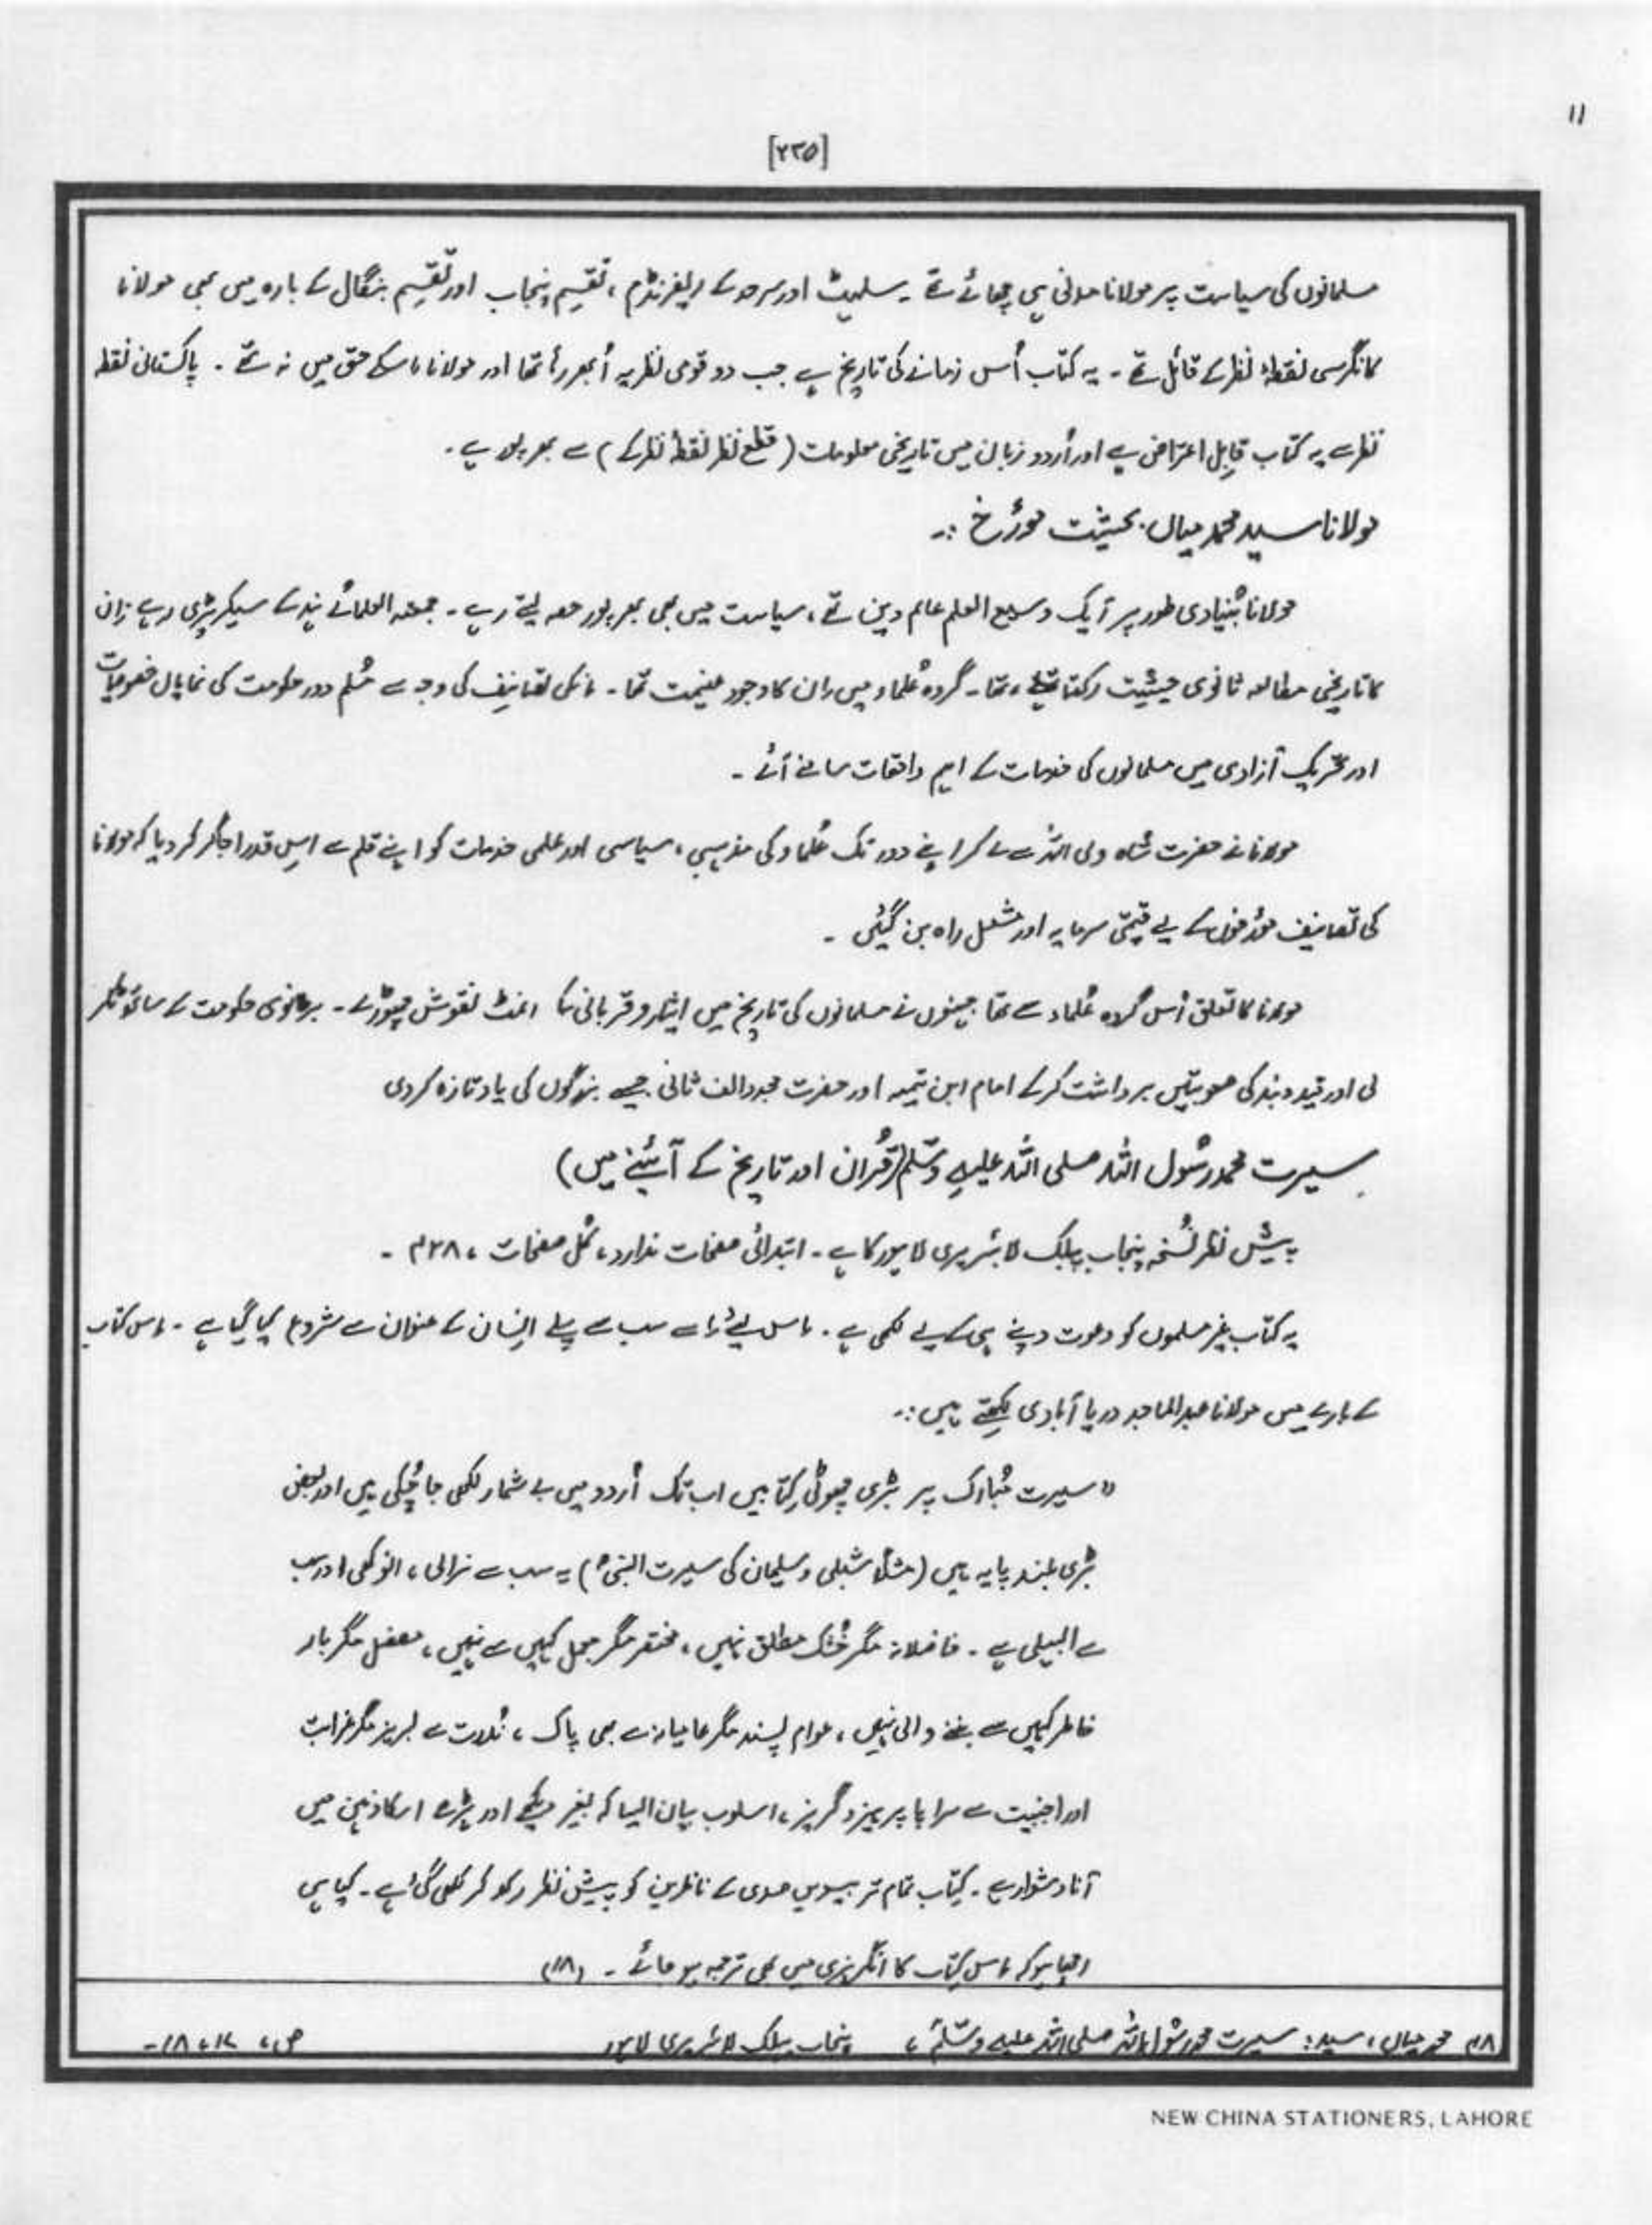 11
[۲۲۵]
مسلمانوں کی سیاست پر مولانا مدنی ہی چھائے تھے ۔ سلہٹ اور سرحد کے ریفرنڈم ، تقسیم پنجاب اور تقسیم بنگال کے بارہ میں بھی مولانا
کانگرسی نقطۂ نظر کے قائل تھے ۔ یہ کتاب اُس زمانے کی تاریخ ہے جب دو قومی نظریہ اُبھر رہا تھا اور مولانا اِس کے حق میں نہ تھے ۔ پاکستانی نقطہ
نظر سے یہ کتاب قابِل اعتراض ہے اور اُردو زبان میں تاریخی معلومات (قطع نظر نقطۂ نظر کے) سے بھرپور ہے ۔
مولانا سید محمد میاں بحیثیت مورٔخ :۔
مولانا بُنیادی طور پر ایک وسیع العلم عالم دین تھے ، سیاست میں بھی بھرپور حصہ لیتے رہے ۔ جمعتہ العلمائے ہند کے سیکریٹری رہے اِن
کا تاریخی مطالعہ ثانوی حیثیت رکھتا تھا ۔ گروہ عُلماء میں اِن کا وجود غنیمت تھا ۔ اِنکی تصانیف کی وجہ سے مُسلم دور حکومت کی نمایاں خصوصیات
اور تحریک آزادی میں مسلمانوں کی خدمات کے اہم واقعات سامنے آئے ۔
مولانا نے حضرت شاہ ولی اللہؒ سے لے کر اپنے دور تک عُلماء کی مذہبی ، سیاسی اور علمی خدمات کو اپنے قلم سے اِس قدر اجاگر کر دیا کہ مولانا
کی تصانیف مؤرخوں کے لیے قیمتی سرمایہ اور مشعل راہ بن گئیں ۔
مولانا کا تعلق اُس گروہ عُلماء سے تھا جنہوں نے مسلمانوں کی تاریخ میں ایثار و قربانی کا انمٹ نقوش چھوڑے ۔ برطانوی حکومت کے ساتھ ٹکر
لی اور قید و بند کی صعوبتیں برداشت کر کے امام ابن تیمیہ اور حضرت مجدد الف ثانی جیسے بزرگوں کی یاد تازہ کر دی
سیرت محمد رسُول اللہ صلی اللہ علیہِ وسّلم (قُرآن اور تاریخ کے آئینے میں)
پیشِ نظر نُسخہ پنجاب پبلک لائبریری لاہور کا ہے ۔ ابتدائی صفحات ندارد ، کُل صفحات ،
یہ کتاب غیر مسلموں کو دعوت دینے ہی کے لیے لکھی ہے ۔ اِس لیئے اِسے سب سے پہلے اِنسان کے عنوان سے شروع کیا گیا ہے ۔ اِس کتاب
کے بارے میں مولانا عبدالماجد دریا آبادی لکھتے ہیں :۔
"سیرت مُبارک پر بڑی چھوٹی کِتابیں اب تک اُردو میں بے شمار لکھی جا چُکی ہیں اور بعض
بڑی بلند پایہ ہیں (مثلاً شبلی و سلیمان کی سیرت النبیؐ) یہ سب سے نرالی ، انوکھی اور سب
سے البیلی ہے ۔ فاضلانہ مگر خُشک مطلق نہیں ، مختصر مگر مجمل کہیں سے نہیں ، مفصل مگر بار
خاطر کہیں سے بننے والی نہیں ، عوام پسند مگر عامیانہ سے بھی پاک ، نُدرت سے لبریز مگر غرابت
اور اجنبیت سے سراپا پرہیز و گریز ، اسلوب بیان ایسا کہ بغیر دیکھے اور پڑھے اسکا ذہن میں
آنا دشوار ہے ۔ کِتاب تمام تر بیسویں صدی کے ناظرین کو پیشِ نظر رکھ کر لکھی گئی ہے ۔ کیا ہی
اچھا ہو کہ اِس کِتاب کا انگریزی میں بھی ترجمہ ہو جائے ۔
محمد میاں ، سید : سیرت محمد رسُول اللہ صلی اللہ علیہ وسّلم ، پنجاب پبلک لائبریری لاہور ص ، ۱۷ ، ۱۸ ۔
NEW CHINA STATIONERS, LAHORE